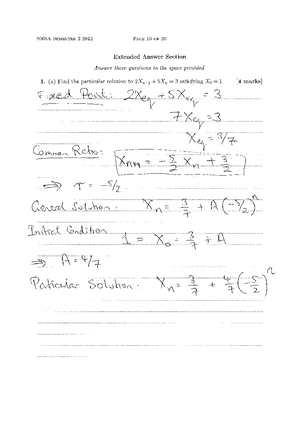 SEMESTER 2 2012 PAGE 10 OF 20
Extended Answer Section
Answer these questions in the space provided
1. (a) Find the particular solution to 2Xₙ₊₁ + 5Xₙ = 3 satisfying X₀ = 1 [4 marks]
Fixed Point: 2X_eq + 5X_eq = 3
7X_eq = 3
X_eq = 3/7
Common Ratio:
Xₙ₊₁ = -5/2 Xₙ + 3/2
⇒ r = -5/2
General Solution: Xₙ = 3/7 + A(-5/2)ⁿ
Initial Condition
1 = X₀ = 3/7 + A
⇒ A = 4/7
Particular Solution: Xₙ = 3/7 + 4/7(-5/2)ⁿ